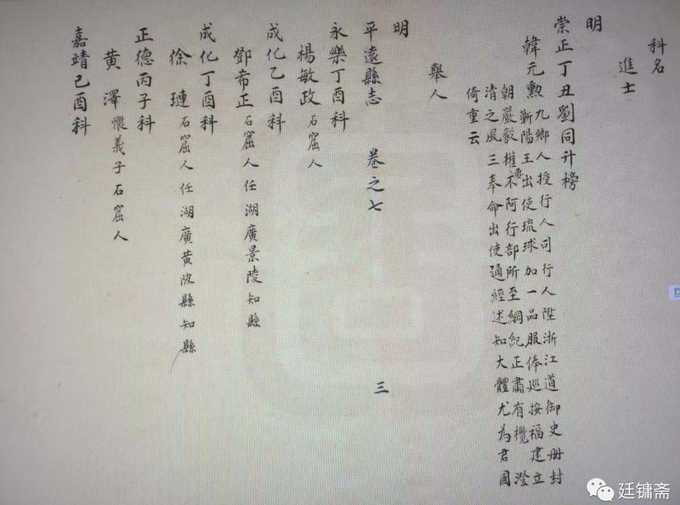 科名
進士
明
崇正丁丑劉同升榜
韓元勳九鄉人授行人司行人陞浙江道御史册封
靳陽王出使琉球加一品服俸巡按福建立
朝嚴毅權不阿行部所至綱紀正肅有攬澄
清之風三奉命出使通經述知大體尤為君國
倚重云
舉人
明
平遠縣志 卷之七 三
永樂丁酉科
楊敏政石窟人
成化乙酉科
鄧希正石窟人任湖廣景陵知縣
成化丁酉科
徐璉石窟人任湖廣黃陂縣知縣
正德丙子科
黃澤懷義子石窟人
嘉靖己酉科
廷镛斋